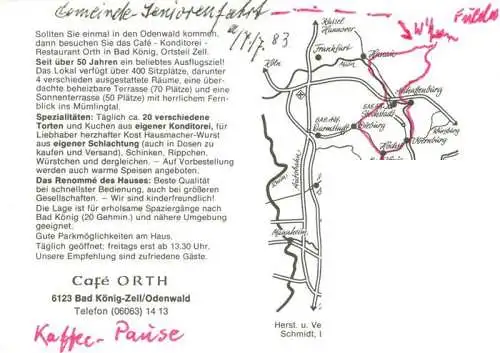 Gemeinde-Seniorenfahrt
83
Sollten Sie einmal in den Odenwald kommen,
dann besuchen Sie das Café - Konditorei -
Restaurant Orth in Bad König, Ortsteil Zell.
Seit über 50 Jahren ein beliebtes Ausflugsziel!
Das Lokal verfügt über 400 Sitzplätze, darunter
4 verschieden ausgestattete Räume, eine über-
dachte beheizbare Terrasse (70 Plätze) und eine
Sonnenterrasse (50 Plätze) mit herrlichem Fern-
blick ins Mümlingtal.
Spezialitäten: Täglich ca. 20 verschiedene
Torten und Kuchen aus eigener Konditorei, für
Liebhaber herzhafter Kost Hausmacher-Wurst
aus eigener Schlachtung (auch in Dosen zu
kaufen und Versand), Schinken, Rippchen,
Würstchen und dergleichen. – Auf Vorbestellung
werden auch warme Speisen angeboten.
Das Renommé des Hauses: Beste Qualität
bei schnellster Bedienung, auch bei größeren
Gesellschaften. – Wir sind kinderfreundlich!
Die Lage ist für erholsame Spaziergänge nach
Bad König (20 Gehmin.) und nähere Umgebung
geeignet.
Gute Parkmöglichkeiten am Haus.
Täglich geöffnet; freitags erst ab 13.30 Uhr.
Unsere Empfehlung sind zufriedene Gäste.
Café ORTH
6123 Bad König-Zell/Odenwald
Telefon (06063) 14 13
Kaffee-Pause
Kassel
Hannover
Frankfurt
Hanau
Main
Köln
Aschaffenburg
BAB Abf.
Stockstadt
BAB Abf.
Darmstadt
Dieburg
Nürnberg
Höchst
Obernburg
Autobahn
Rhein
Mannheim
Herst. u. Ve
Schmidt, I